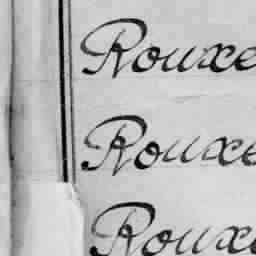 Rouxe
Rouxe
Rouxe